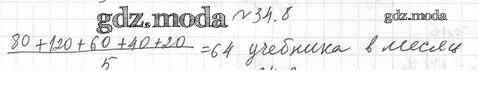 gdz.moda №34.8 gdz.moda
80+120+60+40+20
/5 =64 учебника в месяц